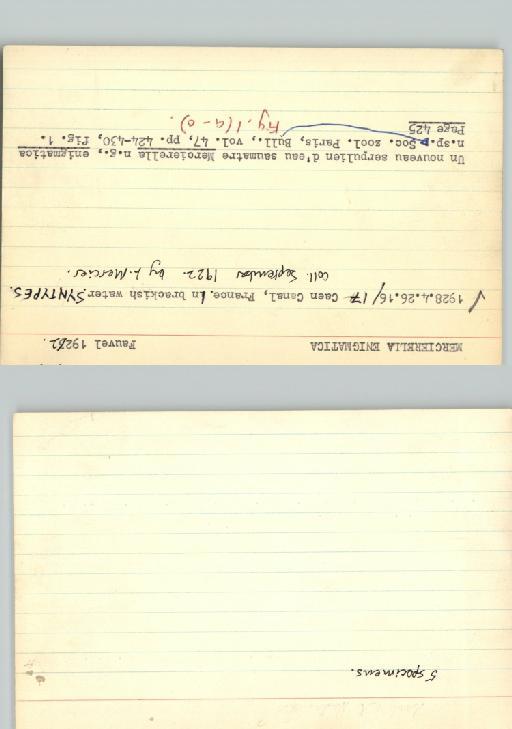 MERCIERELLA ENIGMATICA Fauvel 1922.
1928.4.26.16/17 Caen Canal, France. In brackish water. SYNTYPES.
Coll. September 1922 by L. Mercier.
Un nouveau serpulien d'eau saumatre Mercierella n.g., enigmatica
n.sp. Soc. zool. Paris, Bull., vol. 47, pp. 424-430, fig. 1.
Page 425
Fig. 1 (a-o).
5 specimens.